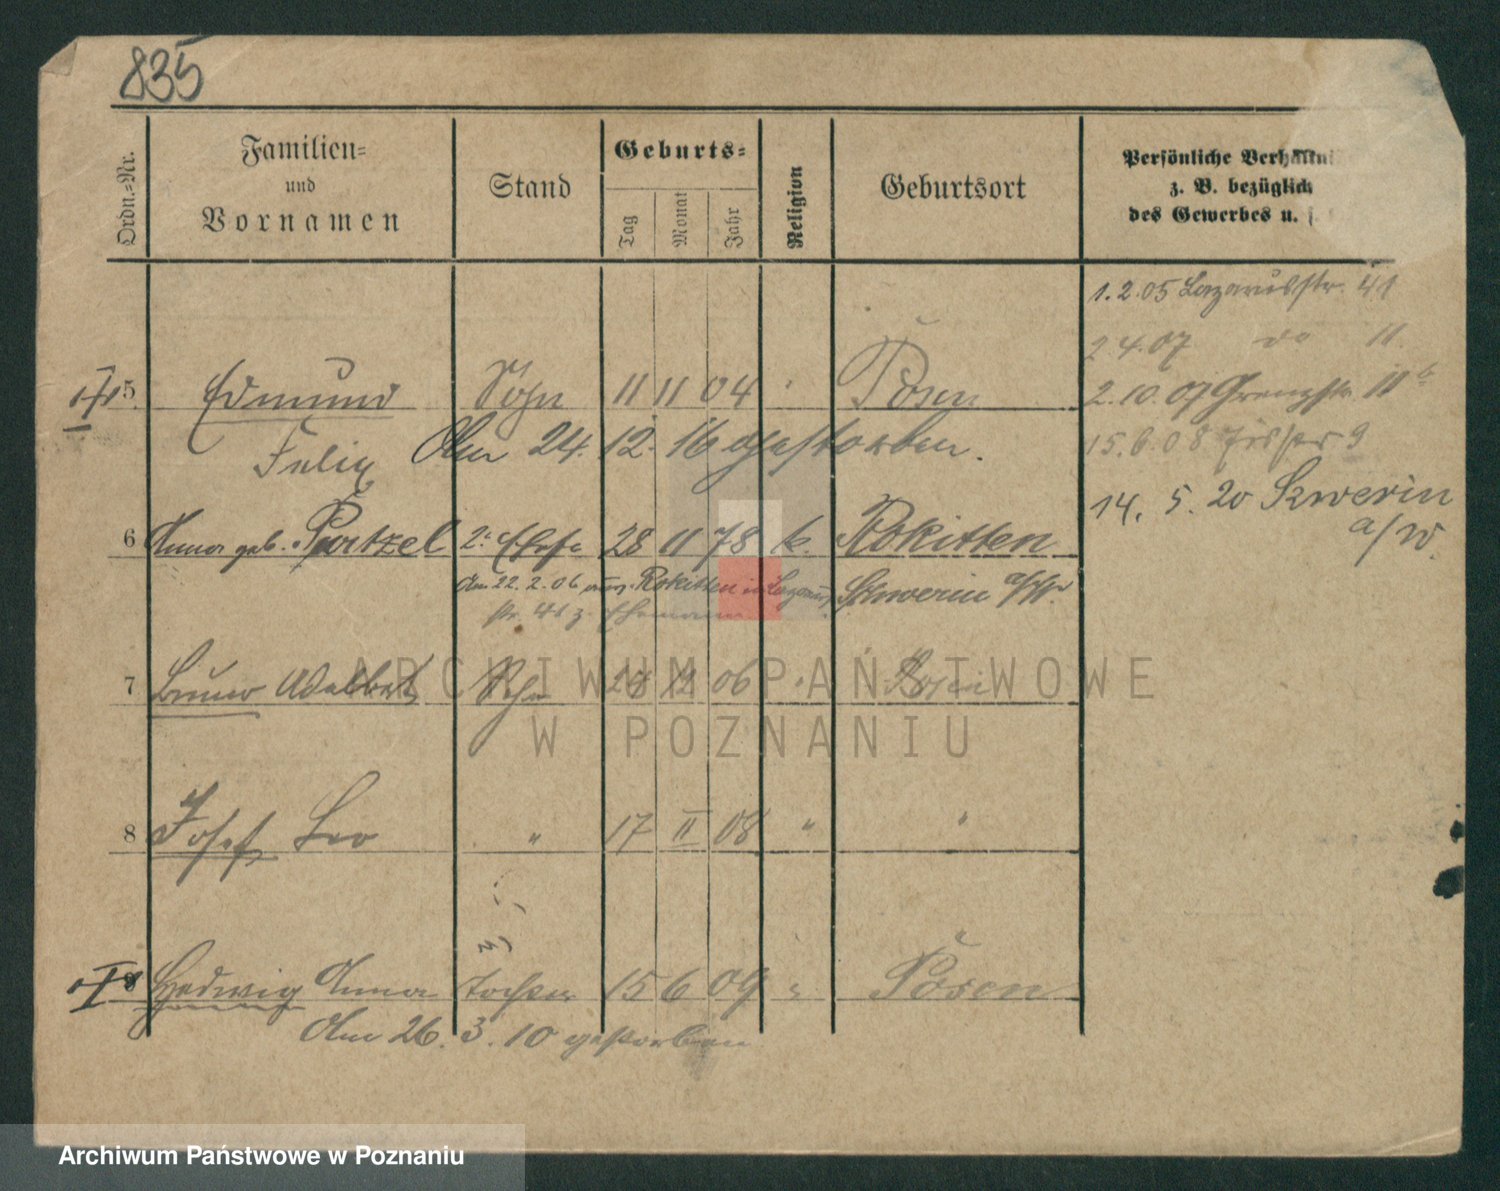 835
Ordn.-Nr.
Familien-
und
Vornamen
Stand
Geburts-
Tag
Monat
Jahr
Religion
Geburtsort
Persönliche Verhältni
z. B. bezüglich
des Gewerbes u. s.
1.2.05 Lazarusstr. 41
2.4.07 do 11.
2.10.07 Grenzstr. 11b
15.6.08 9
14. 5. 20 Schwerin
a/W.
5 Edmund Sohn 11 11 04 " Posen
Felix Am 24. 12. 16 gestorben.
6 Anna geb. Patzel 2. Ehefr. 28 11 78 k. Rokitten
Am 22. 2. 06 aus Rokitten in Lazarus Schwerin a/W.
str. 41 z. Ehemann
7 Bruno Adalbert Sohn 28 12 06 " Posen
8 Josef Leo " 17 II 08 " "
Hedwig Anna Tochter 15 6 09 " Posen
Am 26. 3. 10 gestorben
ARCHIWUM PAŃSTWOWE
W POZNANIU
Archiwum Państwowe w Poznaniu